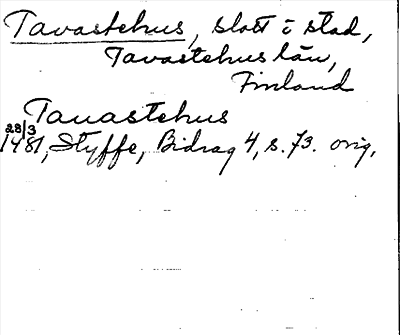 Tavastehus, slott i stad,
Tavastehus län,
Finland
Tauastehus
28/3
1481, Styffe, Bidrag 4, s. 73. orig.